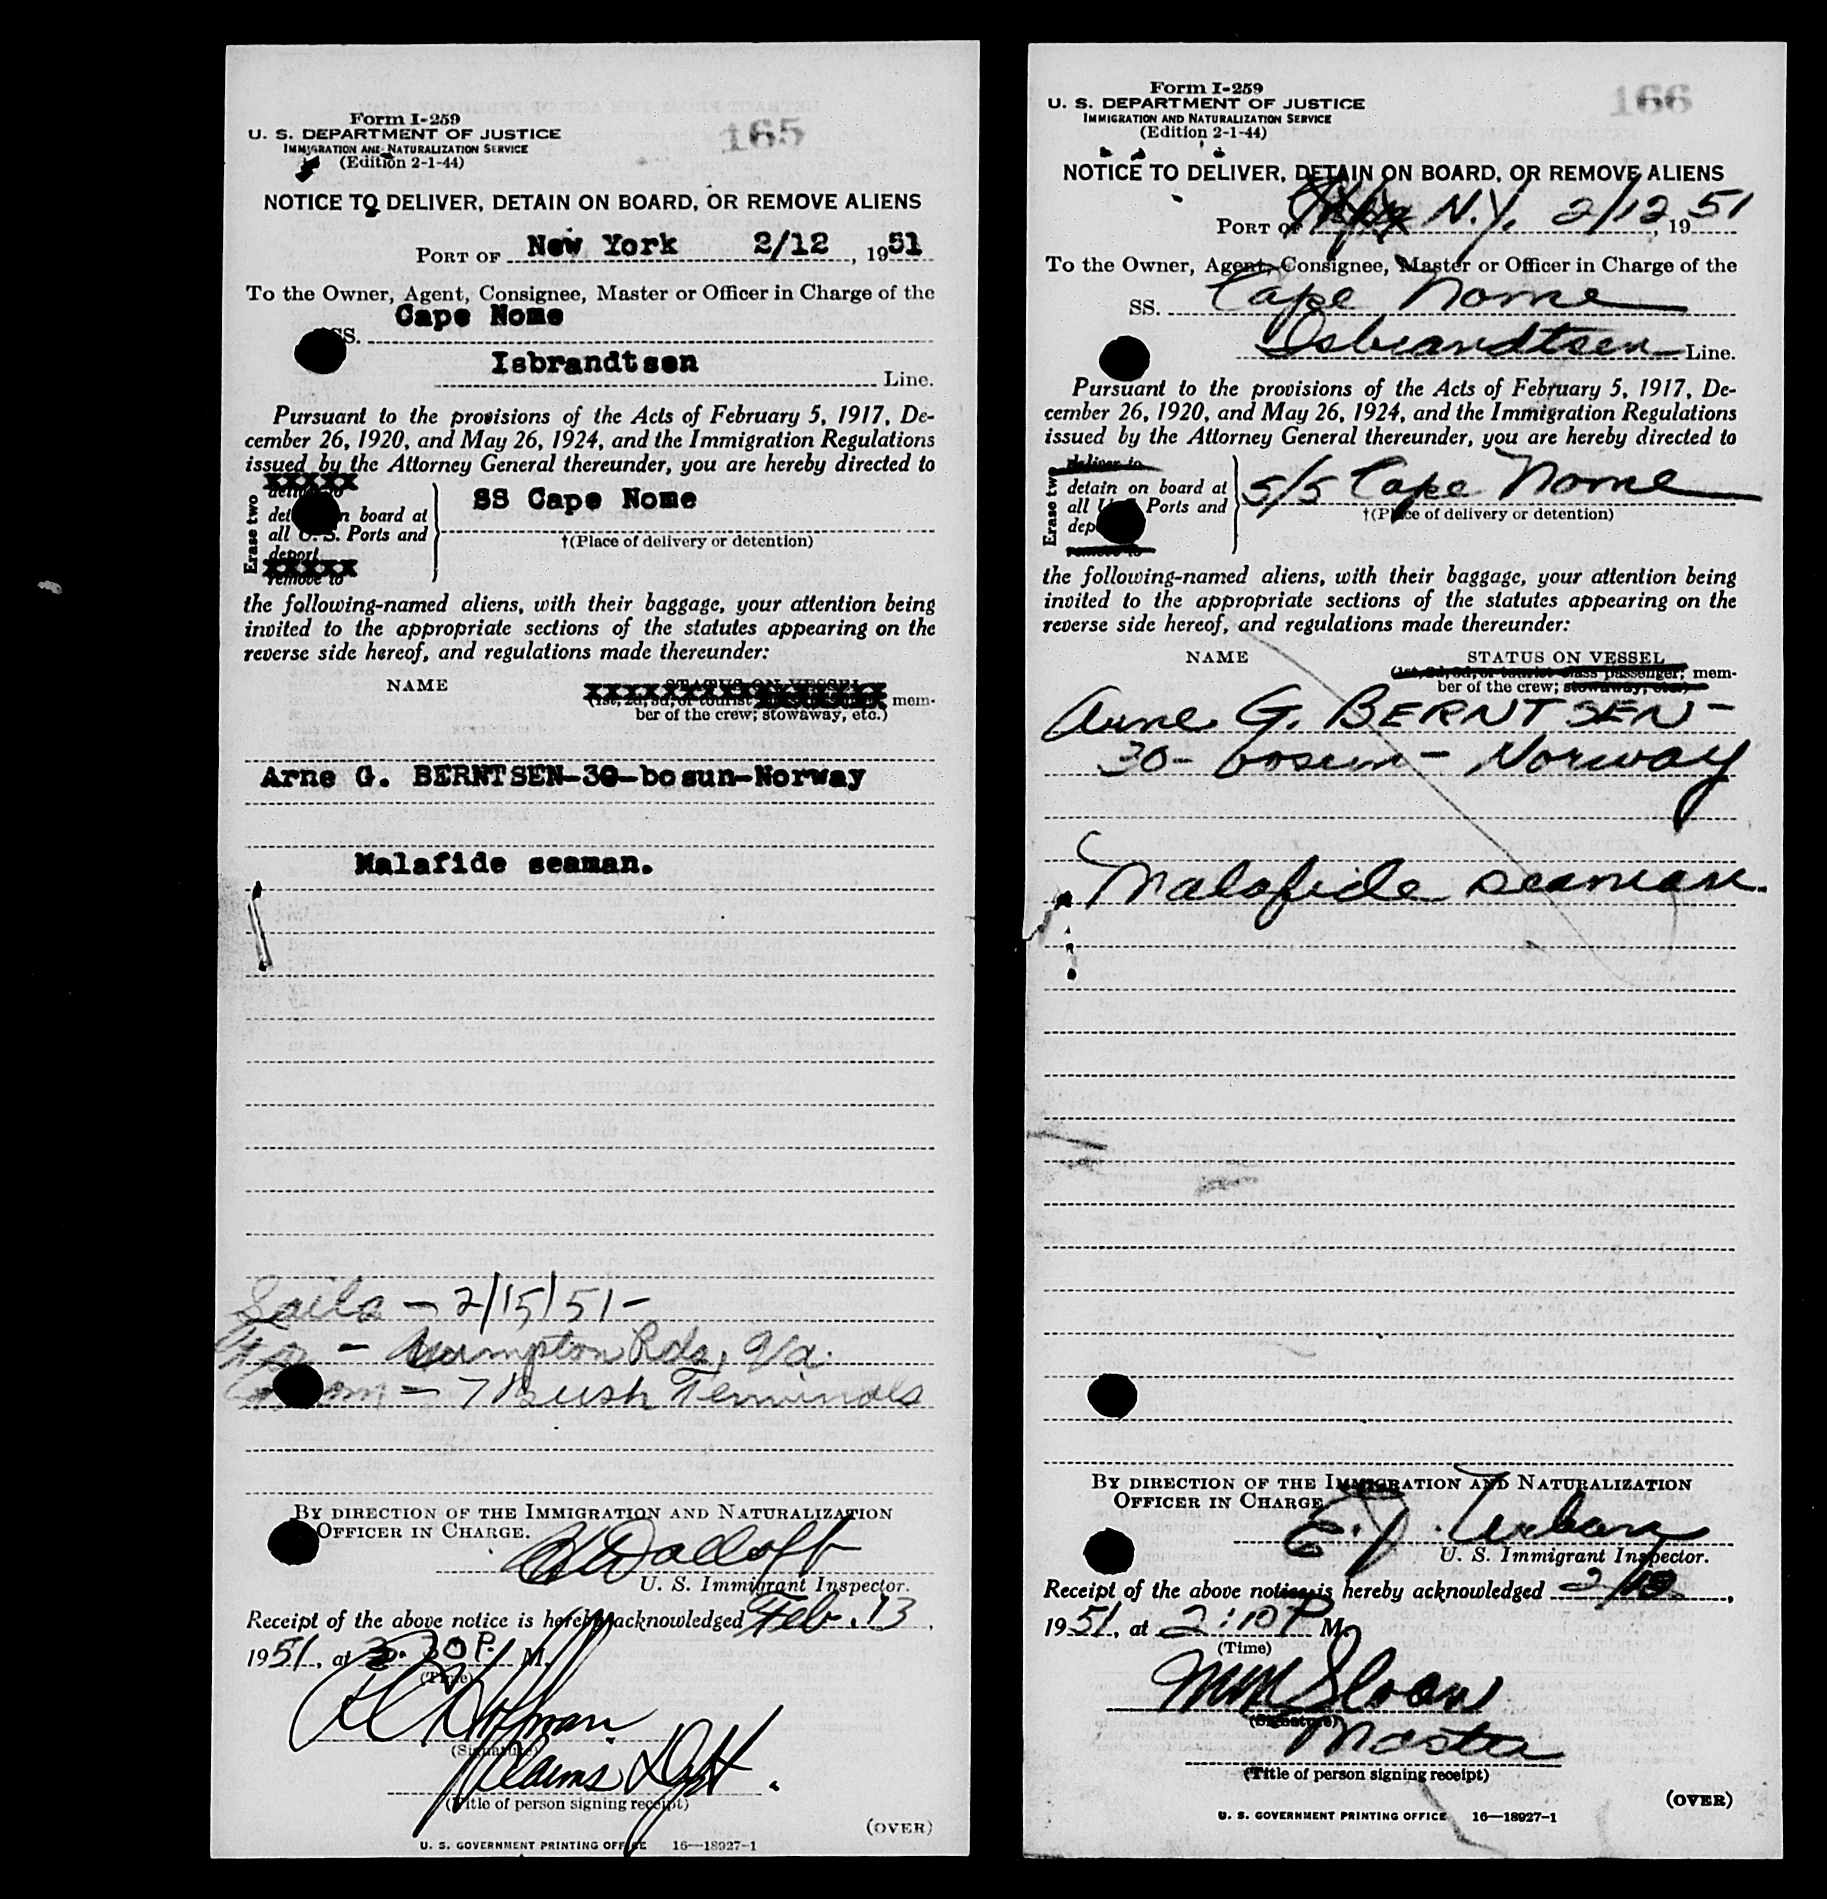 Form I-259
U. S. DEPARTMENT OF JUSTICE
IMMIGRATION AND NATURALIZATION SERVICE
(Edition 2-1-44)
165
NOTICE TO DELIVER, DETAIN ON BOARD, OR REMOVE ALIENS
PORT OF New York 2/12, 1951
To the Owner, Agent, Consignee, Master or Officer in Charge of the
SS. Cape Nome
Isbrandtsen Line.
Pursuant to the provisions of the Acts of February 5, 1917, De-
cember 26, 1920, and May 26, 1924, and the Immigration Regulations
issued by the Attorney General thereunder, you are hereby directed to
Erase two
deliver to
detain on board at
all U. S. Ports and
deport
remove to
SS Cape Nome
†(Place of delivery or detention)
the following-named aliens, with their baggage, your attention being
invited to the appropriate sections of the statutes appearing on the
reverse side hereof, and regulations made thereunder:
NAME
STATUS ON VESSEL
(1st, 2d, 3d, or tourist mem-
ber of the crew; stowaway, etc.)
Arne G. BERNTSEN-30-bosun-Norway
Malafide seaman.
Sails - 2/15/51-
For - Hampton Rds, Va.
From - 7 Bush Terminals
BY DIRECTION OF THE IMMIGRATION AND NATURALIZATION
OFFICER IN CHARGE.
U. S. Immigrant Inspector.
Receipt of the above notice is hereby acknowledged Feb. 13,
1951, at 3:30 P. M.
(Time)
Hoffman
(Signature)
Claims Dept.
(Title of person signing receipt)
(OVER)
U. S. GOVERNMENT PRINTING OFFICE 16—18927-1
Form I-259
U. S. DEPARTMENT OF JUSTICE
IMMIGRATION AND NATURALIZATION SERVICE
(Edition 2-1-44)
166
NOTICE TO DELIVER, DETAIN ON BOARD, OR REMOVE ALIENS
PORT OF N.Y. 2/12, 1951
To the Owner, Agent, Consignee, Master or Officer in Charge of the
SS. Cape Nome
Isbrandtsen Line.
Pursuant to the provisions of the Acts of February 5, 1917, De-
cember 26, 1920, and May 26, 1924, and the Immigration Regulations
issued by the Attorney General thereunder, you are hereby directed to
Erase two
deliver to
detain on board at
all U. S. Ports and
deport
remove to
S/S Cape Nome
†(Place of delivery or detention)
the following-named aliens, with their baggage, your attention being
invited to the appropriate sections of the statutes appearing on the
reverse side hereof, and regulations made thereunder:
NAME
STATUS ON VESSEL
(1st, 2d, 3d, or tourist class passenger; mem-
ber of the crew; stowaway, etc.)
Arne G. BERNTSEN -
30 - bosun - Norway
Malafide seaman.
BY DIRECTION OF THE IMMIGRATION AND NATURALIZATION
OFFICER IN CHARGE
E. J. Urban
U. S. Immigrant Inspector.
Receipt of the above notice is hereby acknowledged
1951, at 2:10 P M.
(Time)
Sloan
(Signature)
Master
(Title of person signing receipt)
(OVER)
U. S. GOVERNMENT PRINTING OFFICE 16—18927-1